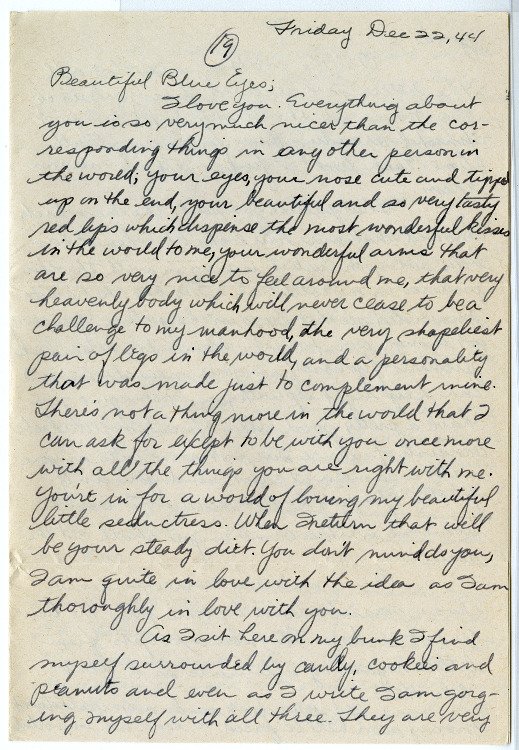 Friday Dec 22, 44
19
Beautiful Blue Eyes;
I love you. Everything about
you is so very much nicer than the cor-
responding things in any other person in
the world; your eyes, your nose cute and tipped
up on the end, your beautiful and so very tasty
red lips which dispense the most wonderful kisses
in the world to me, your wonderful arms that
are so very nice to feel around me, that very
heavenly body which will never cease to be a
challenge to my manhood, the very shapeliest
pair of legs in the world, and a personality
that was made just to complement mine.
There's not a thing more in the world that I
can ask for except to be with you once more
with all the things you are right with me.
You're in for a world of loving my beautiful
little seductress. When I return that will
be your steady diet. You don't mind do you,
I am quite in love with the idea as I am
thoroughly in love with you.
As I sit here on my bunk I find
myself surrounded by candy, cookies and
peanuts and even as I write I am gorg-
ing myself with all three. They are very